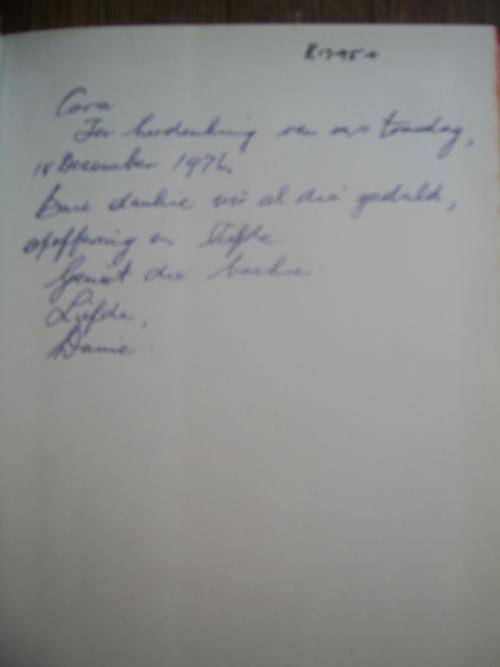 R1395 +
Cara
Ter herdenking van ons troudag,
18 December 1976.
Baie dankie vir al die geduld,
opoffering en liefde
Geniet die boekie.
Liefde,
Danie.